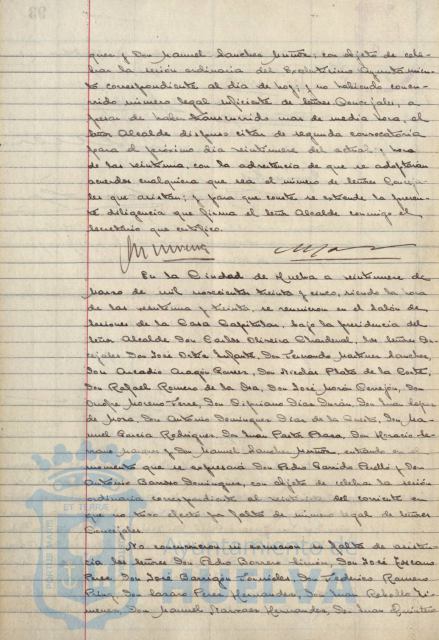 ques y Don Manuel Sanchez Muñoz; con objeto de cele-
brar la sesión ordinaria del Excelentísimo Ayuntamien-
to correspondiente al día de hoy; y no habiendo concu-
rrido número legal suficiente de Señores Concejales, a
pesar de haber transcurrido mas de media hora, el
Señor Alcalde dispuso citar de segunda convocatoria
para el próximo día veintinueve del actual y hora
de las veintiuna, con la advertencia de que se adoptarán
acuerdos cualquiera que sea el número de Señores Conceja-
les que asistan; y para que conste se extiende la presen-
te diligencia que firma el Señor Alcalde conmigo el
Secretario que certifico.
En la Ciudad de Huelva a veintinueve de
Marzo de mil novecientos treinta y cinco, siendo la hora
de las veintiuna y treinta, se reunieron en el Salón de
Sesiones de la Casa Capitular, bajo la presidencia del
Señor Alcalde Don Carlos Oliveira Chardenal, los Señores Con-
cejales Don José Ortiz Infante, Don Fernando Martinez Sanchez,
Don Arcadio Aragón Gomez, Don Nicolás Plata de la Corte,
Don Rafael Romero de la Osa, Don José Morón Cerejon, Don
Onofre Moreno Perez, Don Cipriano Días Durán, Don Juan Lopez
de Mora, Don Antonio Dominguez Días de la Costa, Don Ma-
nuel Garcia Rodriguez, Don Juan Plaza, Don Horacio
Marquez y Don Manuel Sanchez Muñoz, entrando en el
momento que se expresará Don Pedro Garrido Perelló y Don
Antonio Barroso Dominguez, con objeto de celebrar la sesión
ordinaria correspondiente al veintisiete del corriente en
que no tuvo efecto por falta de número legal de Señores
Concejales.
No concurrieron ni excusaron su falta de asisten-
cia los Señores Don Pedro Borrero Limón, Don José Toscano
Perez, Don José Barrigón Don Federico Romero
Don Lazaro Perez Hernandez, Don Juan Rebollo Ji-
menez, Don Manuel Narvaez Hernandez, Don Juan Quintero
ET TERRAE
PORTUS MARIS
Ayuntamiento